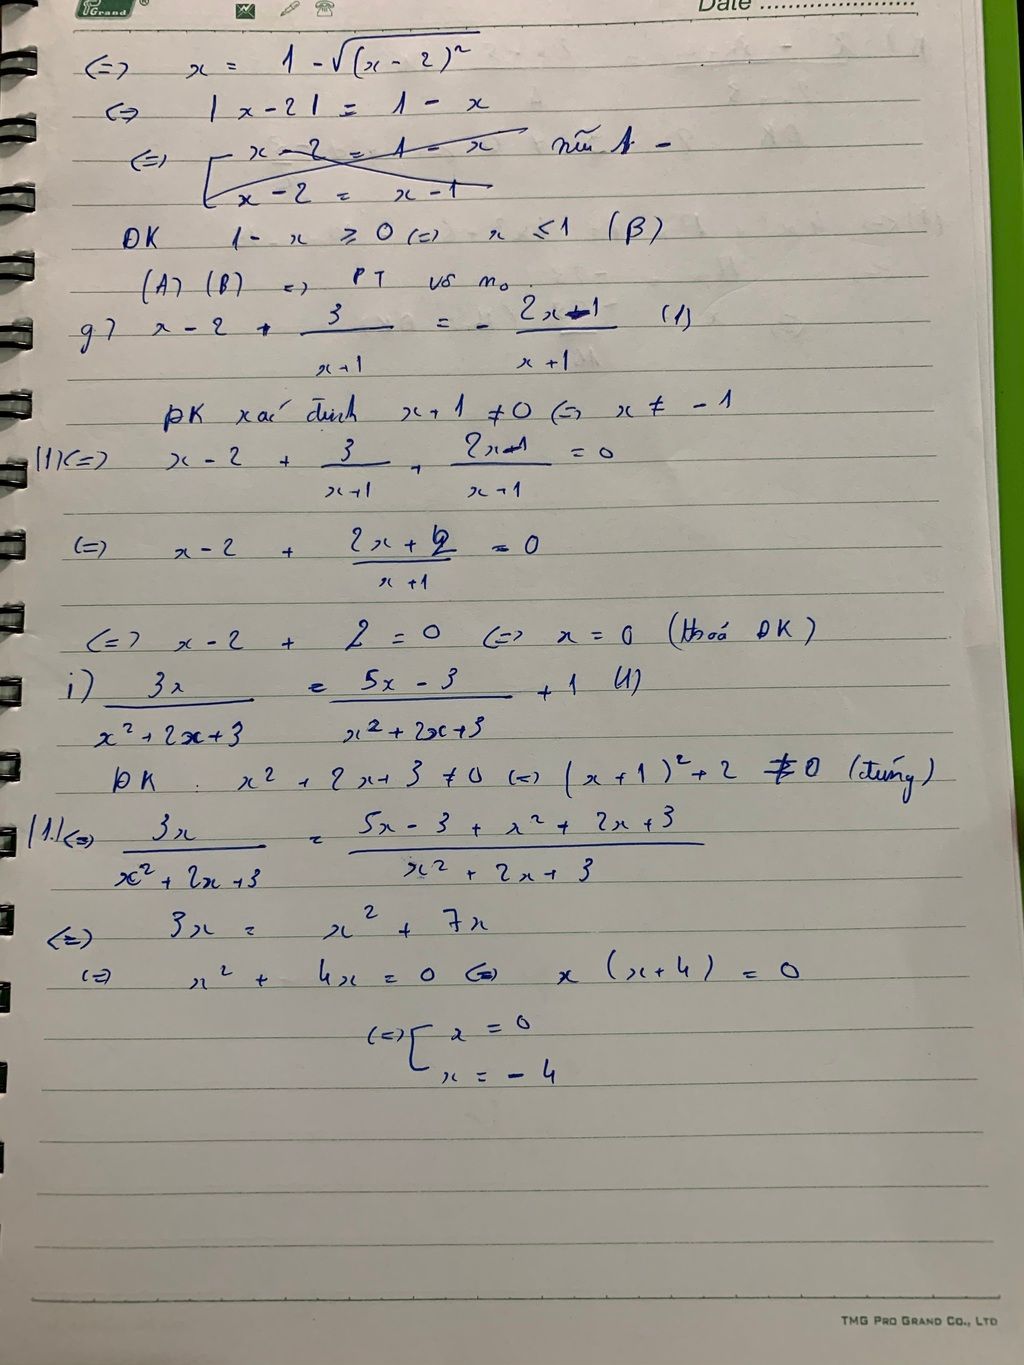 TGrand ® Date ......................
<=> x = 1 - √(x - 2)²
<=> |x - 2| = 1 - x
<=> [ x - 2 = 1 - x nếu 1 -
x - 2 = x - 1
ĐK 1 - x ≥ 0 <=> x ≤ 1 (B)
(A) (B) => PT vô no
g) x - 2 + 3/(x+1) = - (2x-1)/(x+1) (1)
ĐK xác định x + 1 ≠ 0 <=> x ≠ -1
(1) <=> x - 2 + 3/(x+1) + (2x-1)/(x+1) = 0
<=> x - 2 + (2x + 2)/(x+1) = 0
<=> x - 2 + 2 = 0 <=> x = 0 (thoả ĐK)
i) 3x/(x² + 2x + 3) = (5x - 3)/(x² + 2x + 3) + 1 (1)
ĐK : x² + 2x + 3 ≠ 0 <=> (x + 1)² + 2 ≠ 0 (đúng)
(1) <=> 3x/(x² + 2x + 3) = (5x - 3 + x² + 2x + 3)/(x² + 2x + 3)
<=> 3x = x² + 7x
<=> x² + 4x = 0 <=> x (x + 4) = 0
<=> [ x = 0
x = - 4
TMG PRO GRAND CO., LTD